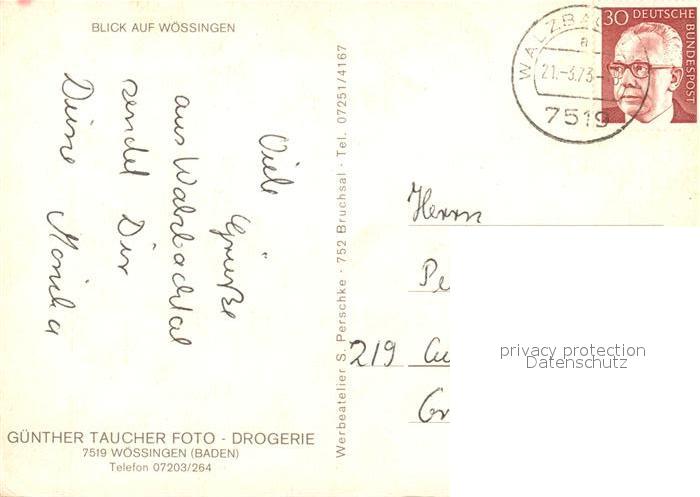 BLICK AUF WÖSSINGEN
Viele
Grüße
aus Walzbachtal
sendet Dir
Deine Monika
GÜNTHER TAUCHER FOTO - DROGERIE
7519 WÖSSINGEN (BADEN)
Telefon 07203/264
Werbeatelier S. Perschke · 752 Bruchsal · Tel. 07251/4167
30 DEUTSCHE
BUNDESPOST
21.-3.73-
7519
Herrn
Pe
219 Cu
privacy protection
Datenschutz